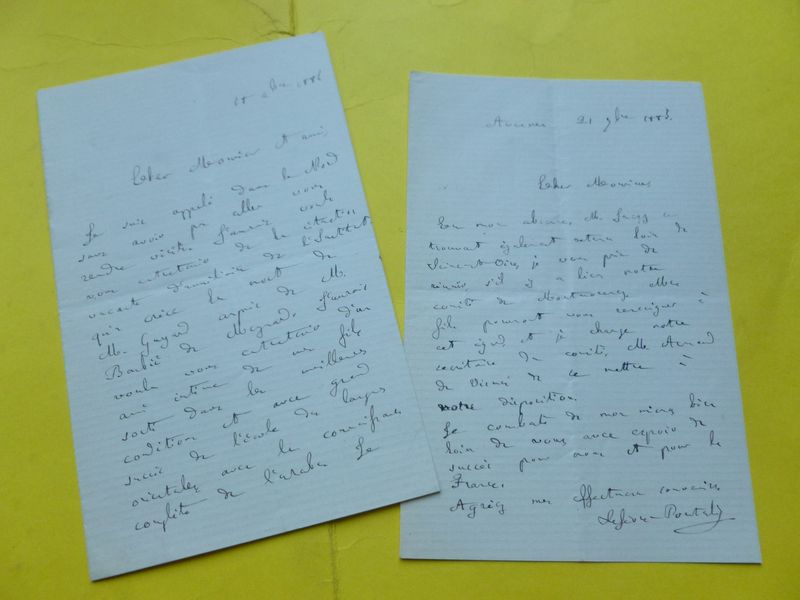 15 1886
Cher Monsieur et ami,
Je suis appelé dans le Nord
sans avoir pu aller vous
rendre visite. J'aurais voulu
vous entretenir de la situation
vacante de l'Institut
qu'a créée la mort de
M. Guyard auprès de M.
Barbier de Meynard. J'aurais
voulu vous entretenir d'un
ami intime de mes fils
sorti dans les meilleures
condition et avec grand
succès de l'école des langues
orientales avec la connaissance
complète de l'arabe. Je
21 9bre 1885
Cher Monsieur
En mon absence, M. se
trouvant également retenu loin de
Seine-et-Oise, je vous prie de
s'il y a bien notre
comité de Montmorency. Mes
fils pourront vous renseigner à
cet égard et je charge notre
secrétaire du comité, M.
de de se mettre à
votre disposition.
Je combats de mon mieux bien
loin de vous avec espoir de
succès pour vous et pour la
France.
Agréez mes affectueux souvenirs.
Lefèvre-Pontalis